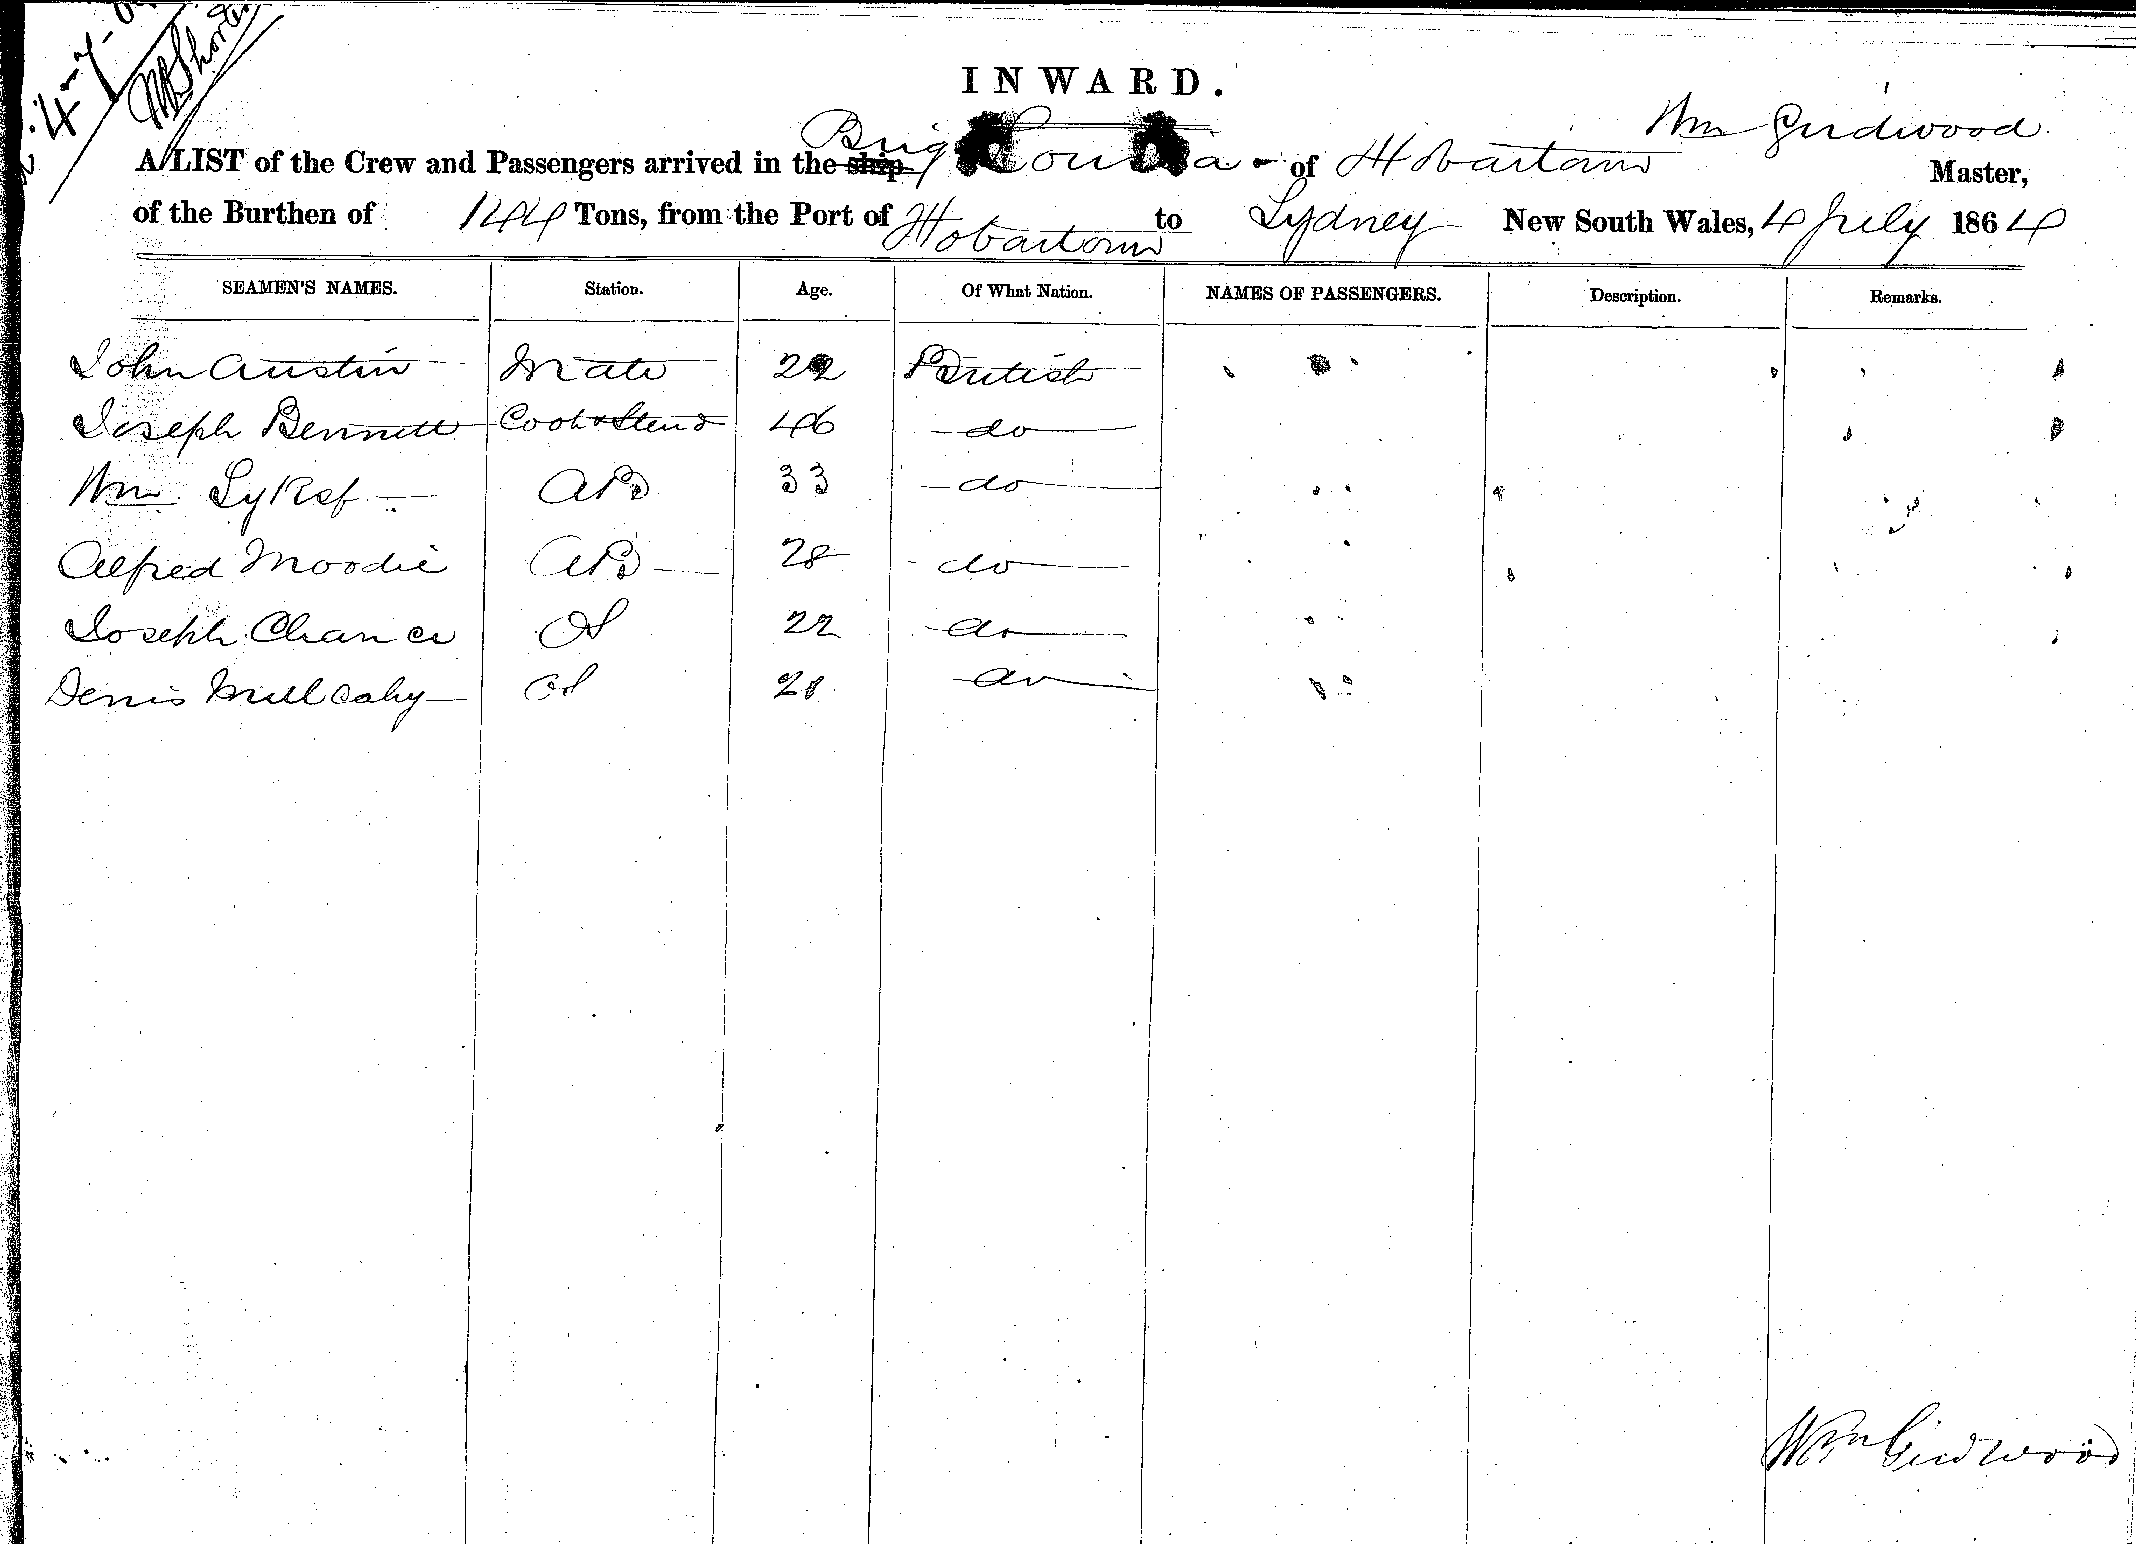 4-7-
M Shorter
INWARD.
Wm Girdwood
A LIST of the Crew and Passengers arrived in the ship Brig Louisa of Hobartown Master,
of the Burthen of 144 Tons, from the Port of Hobartown to Sydney New South Wales, 4 July 1864
SEAMEN'S NAMES. Station. Age. Of What Nation. NAMES OF PASSENGERS. Description. Remarks.
John Austin Mate 22 British
Joseph Bennett Cook & Stewd 46 do
Wm Sykes AB 33 do
Alfred Moodie AB 28 do
Joseph Chance OS 22 do
Denis Mullcahy OS 28 do
Wm Girdwood